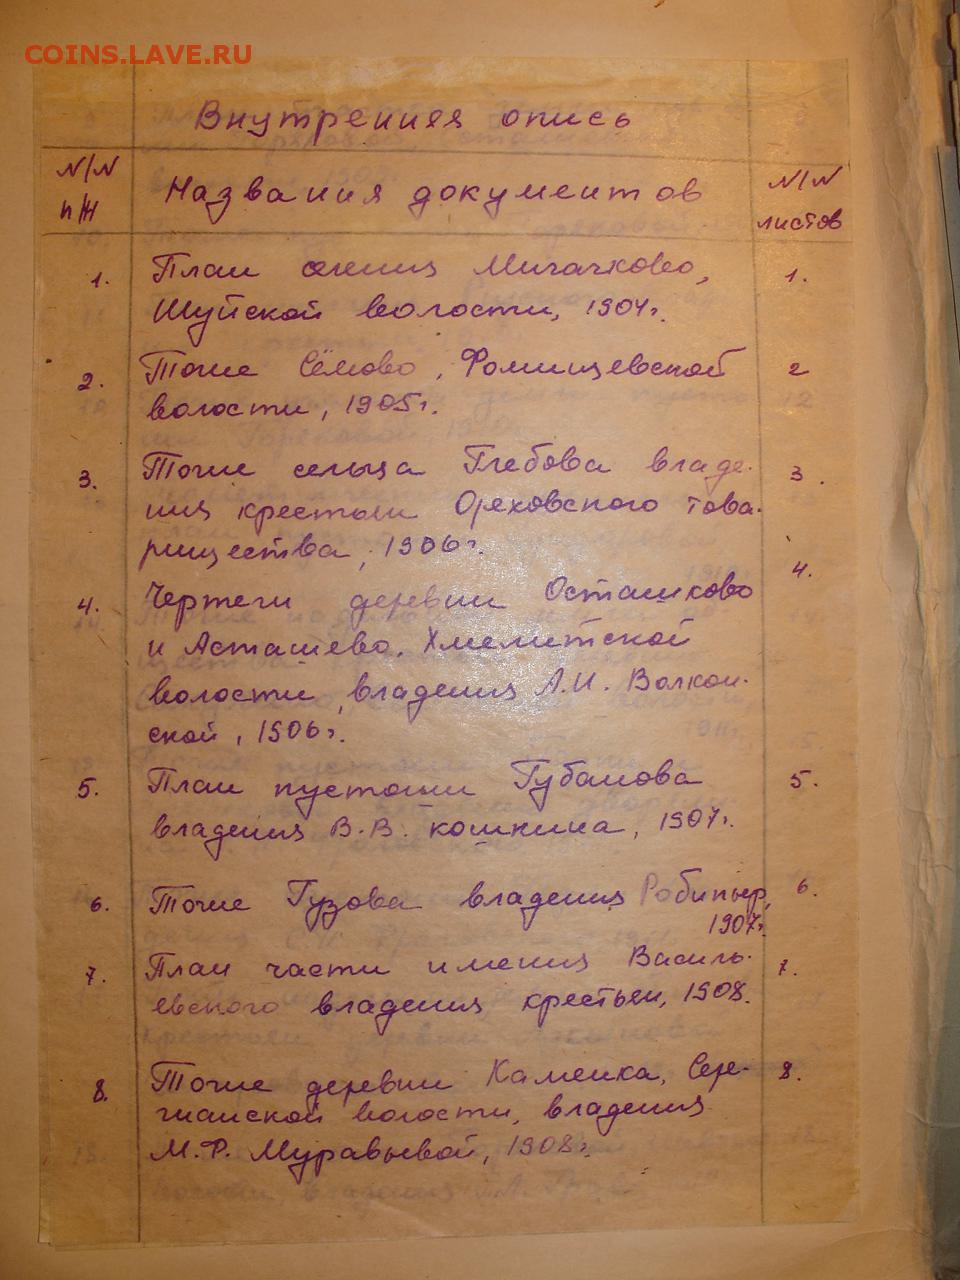 COINS.LAVE.RU
Внутренняя опись
N/N Названия документов N/N
п/п листов
1. План имения Мичачково, 1.
Шуйской волости, 1904г.
2. Тоже Сёмово, Фомищевской 2
волости, 1905г.
3. Тоже сельца Глебова владе- 3.
ния крестьян Ореховского това-
рищества, 1906г.
4. Чертежи деревни Осташково 4.
и Асташево, Хмелитской
волости, владения А.И. Волкон-
ской, 1906г.
5. План пустоши Губанова 5.
владения В.В. Кошкина, 1907г.
6. Тоже Гузова владения Робипьер, 6.
1907г.
7. План части имения Василь- 7.
евского владения крестьян, 1908.
8. Тоже деревни Каменка, Сере- 8.
волости, владения
М.Ф. Муравьевой, 1908г.